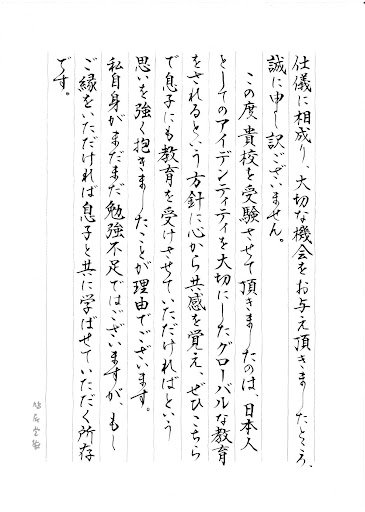 仕儀に相成り、大切な機会をお与え頂きましたところ、
誠に申し訳ございません。
この度、貴校を受験させて頂きましたのは、日本人
としてのアイデンティティを大切にしたグローバルな教育
をされるという方針に心から共感を覚え、ぜひこちら
で息子にも教育を受けさせていただければという
思いを強く抱きましたことが理由でございます。
私自身がまだまだ勉強不足ではございますが、もし
ご縁をいただければ息子と共に学ばせていただく所存
です。